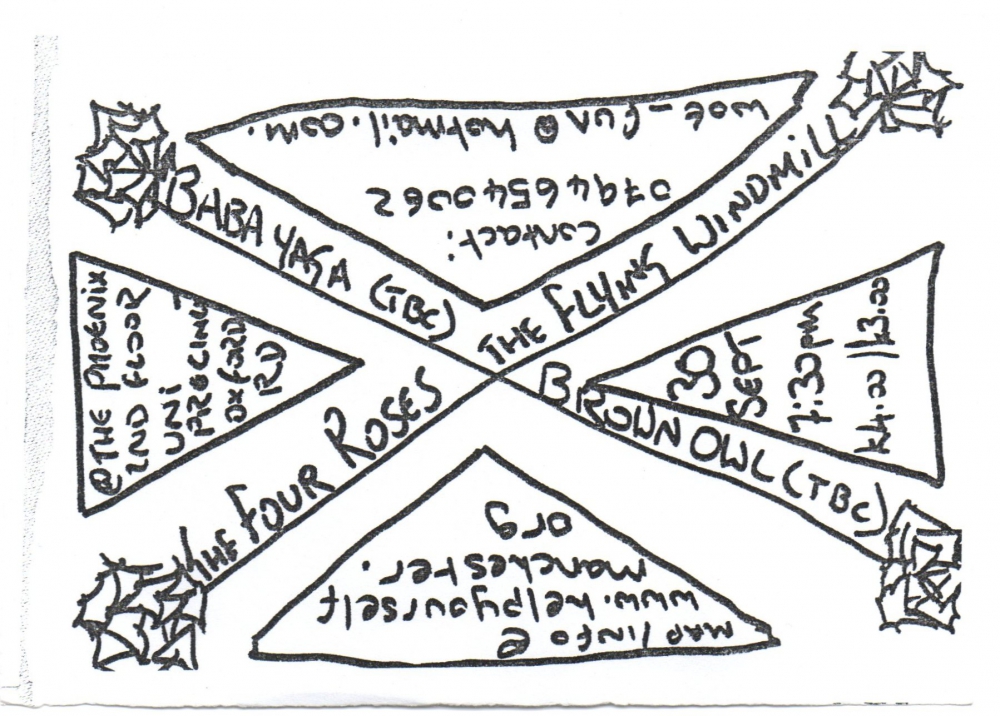 BABA YAGA (TBC)
THE FLYING WINDMILL
THE FOUR ROSES
BROWN OWL (TBC)
contact:
07946540062
wot_fun@hotmail.com.
@THE PHOENIX
2ND FLOOR
UNI
PRECINCT
OXFORD
RD
30
SEPT
7:30pm
£4.00/£3.00
MAP/INFO @
www.helpyourself
manchester.
org